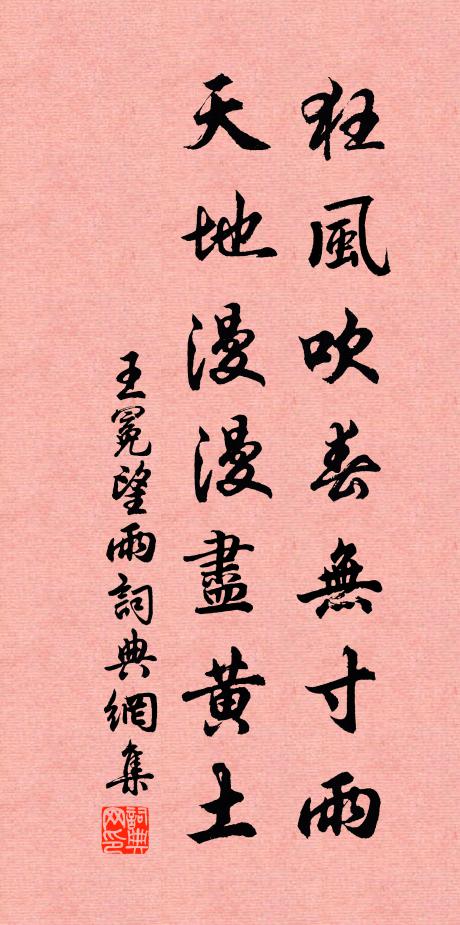 狂風吹春無寸雨
天地漫漫盡黃土
王冕望雨詞典網集
詞典网印